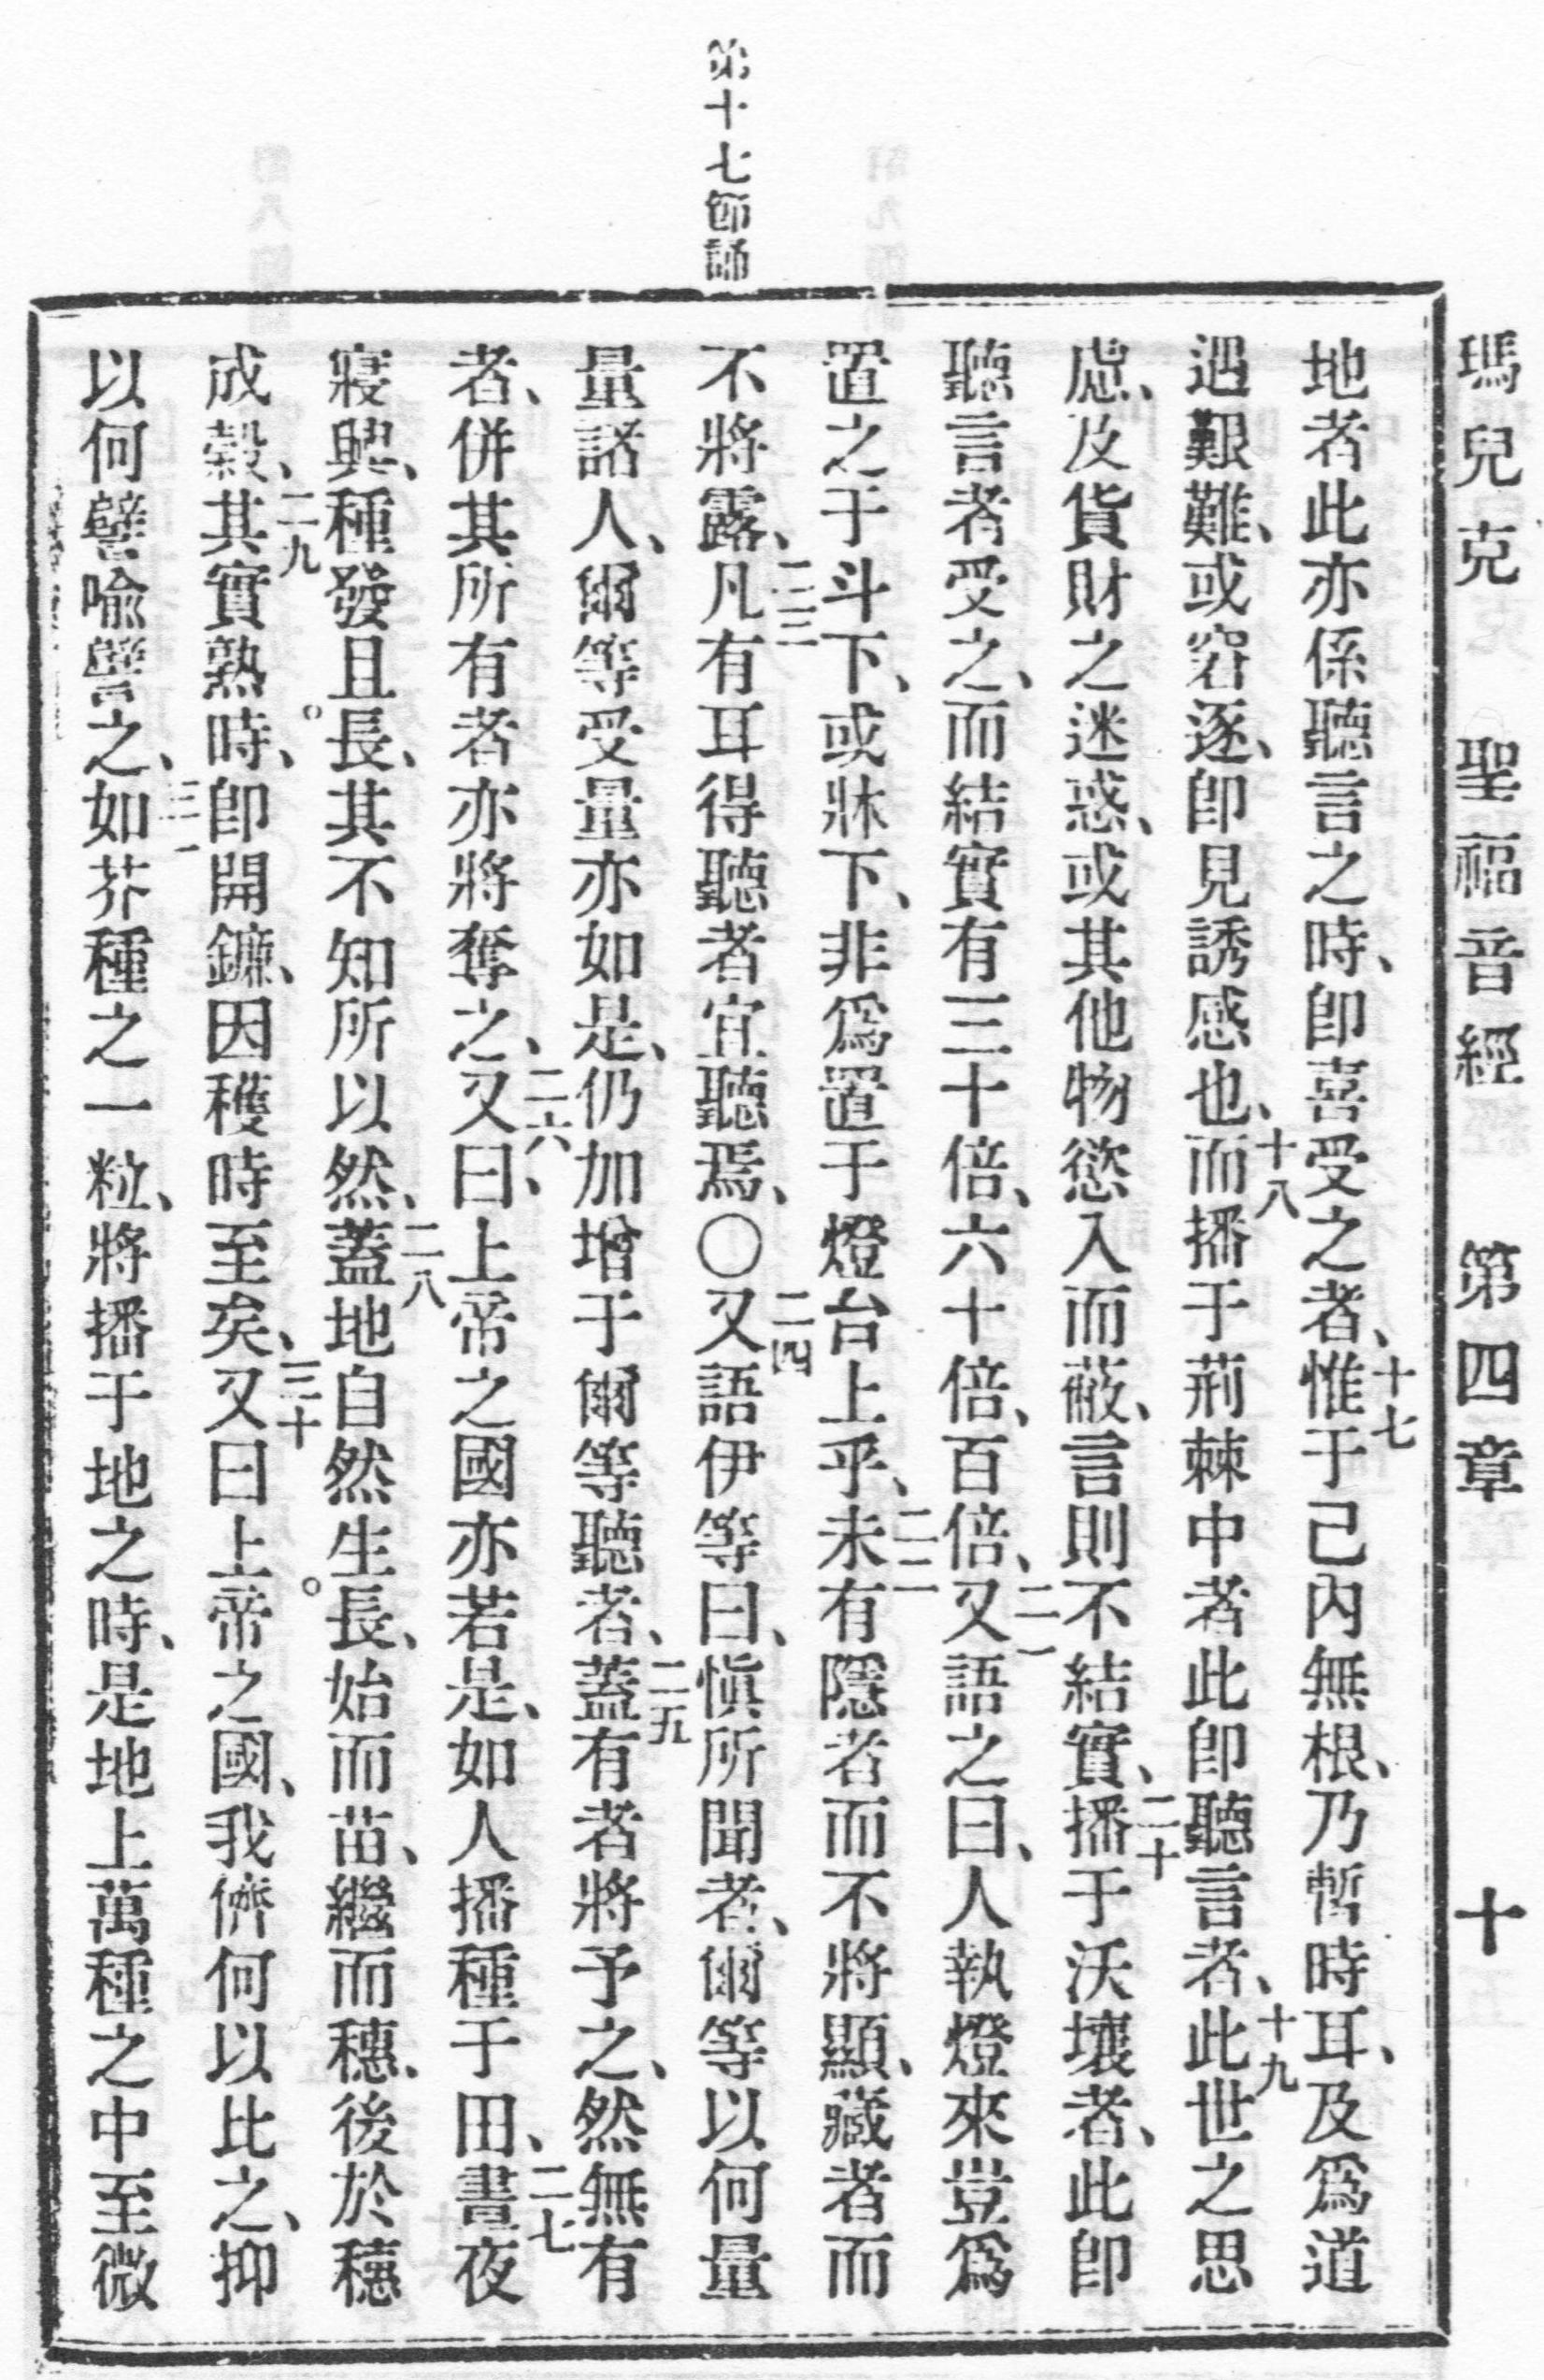 瑪兒克　聖福音經　第四章　十
第十七節誦
地者此亦係聽言之時、卽喜受之者、十七惟于己內無根、乃暫時耳、及爲道
遇艱難、或窘逐、卽見誘感也、十八而播于荊棘中者此卽聽言者、十九此世之思
慮、及貨財之迷惑、或其他物慾入而蔽、言則不結實、二十播于沃壤者、此卽
聽言者受之、而結實有三十倍、六十倍、百倍、二一又語之曰、人執燈來豈爲
置之于斗下、或牀下、非爲置于燈台上乎、二二未有隱者而不將顯、藏者而
不將露、二三凡有耳得聽者宜聽焉、〇二四又語伊等曰、愼所聞者、爾等以何量
量諸人、爾等受量亦如是、仍加增于爾等聽者、二五蓋有者將予之、然無有
者、併其所有者亦將奪之、二六又曰、上帝之國亦若是、如人播種于田、二七晝夜
寢興、種發且長、其不知所以然、二八蓋地自然生長、始而苗、繼而穗、後於穗
成穀、二九其實熟時、卽開鐮、因穫時至矣、三十又曰上帝之國、我儕何以比之、抑
以何譬喻譬之、三一如芥種之一粒、將播于地之時、是地上萬種之中至微